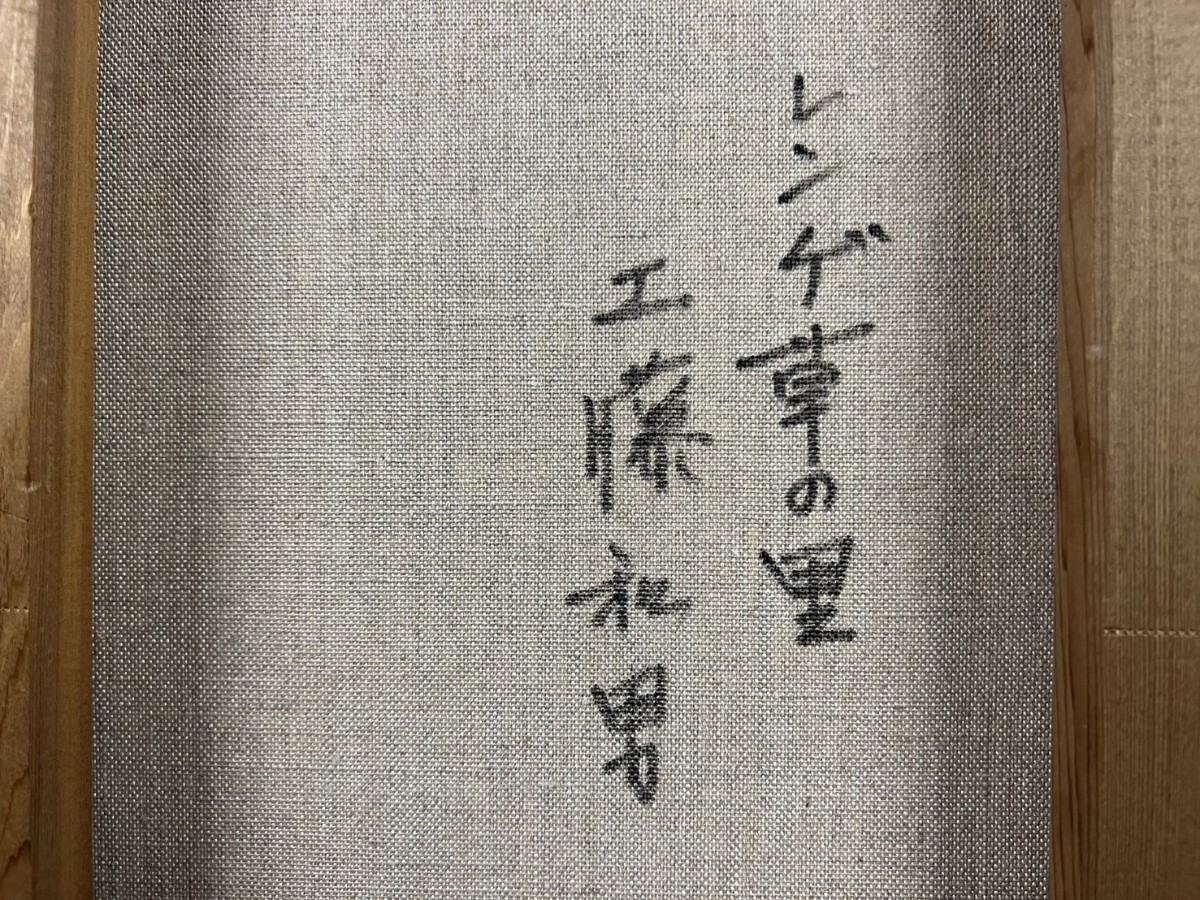 レンゲ草の里
工藤和男